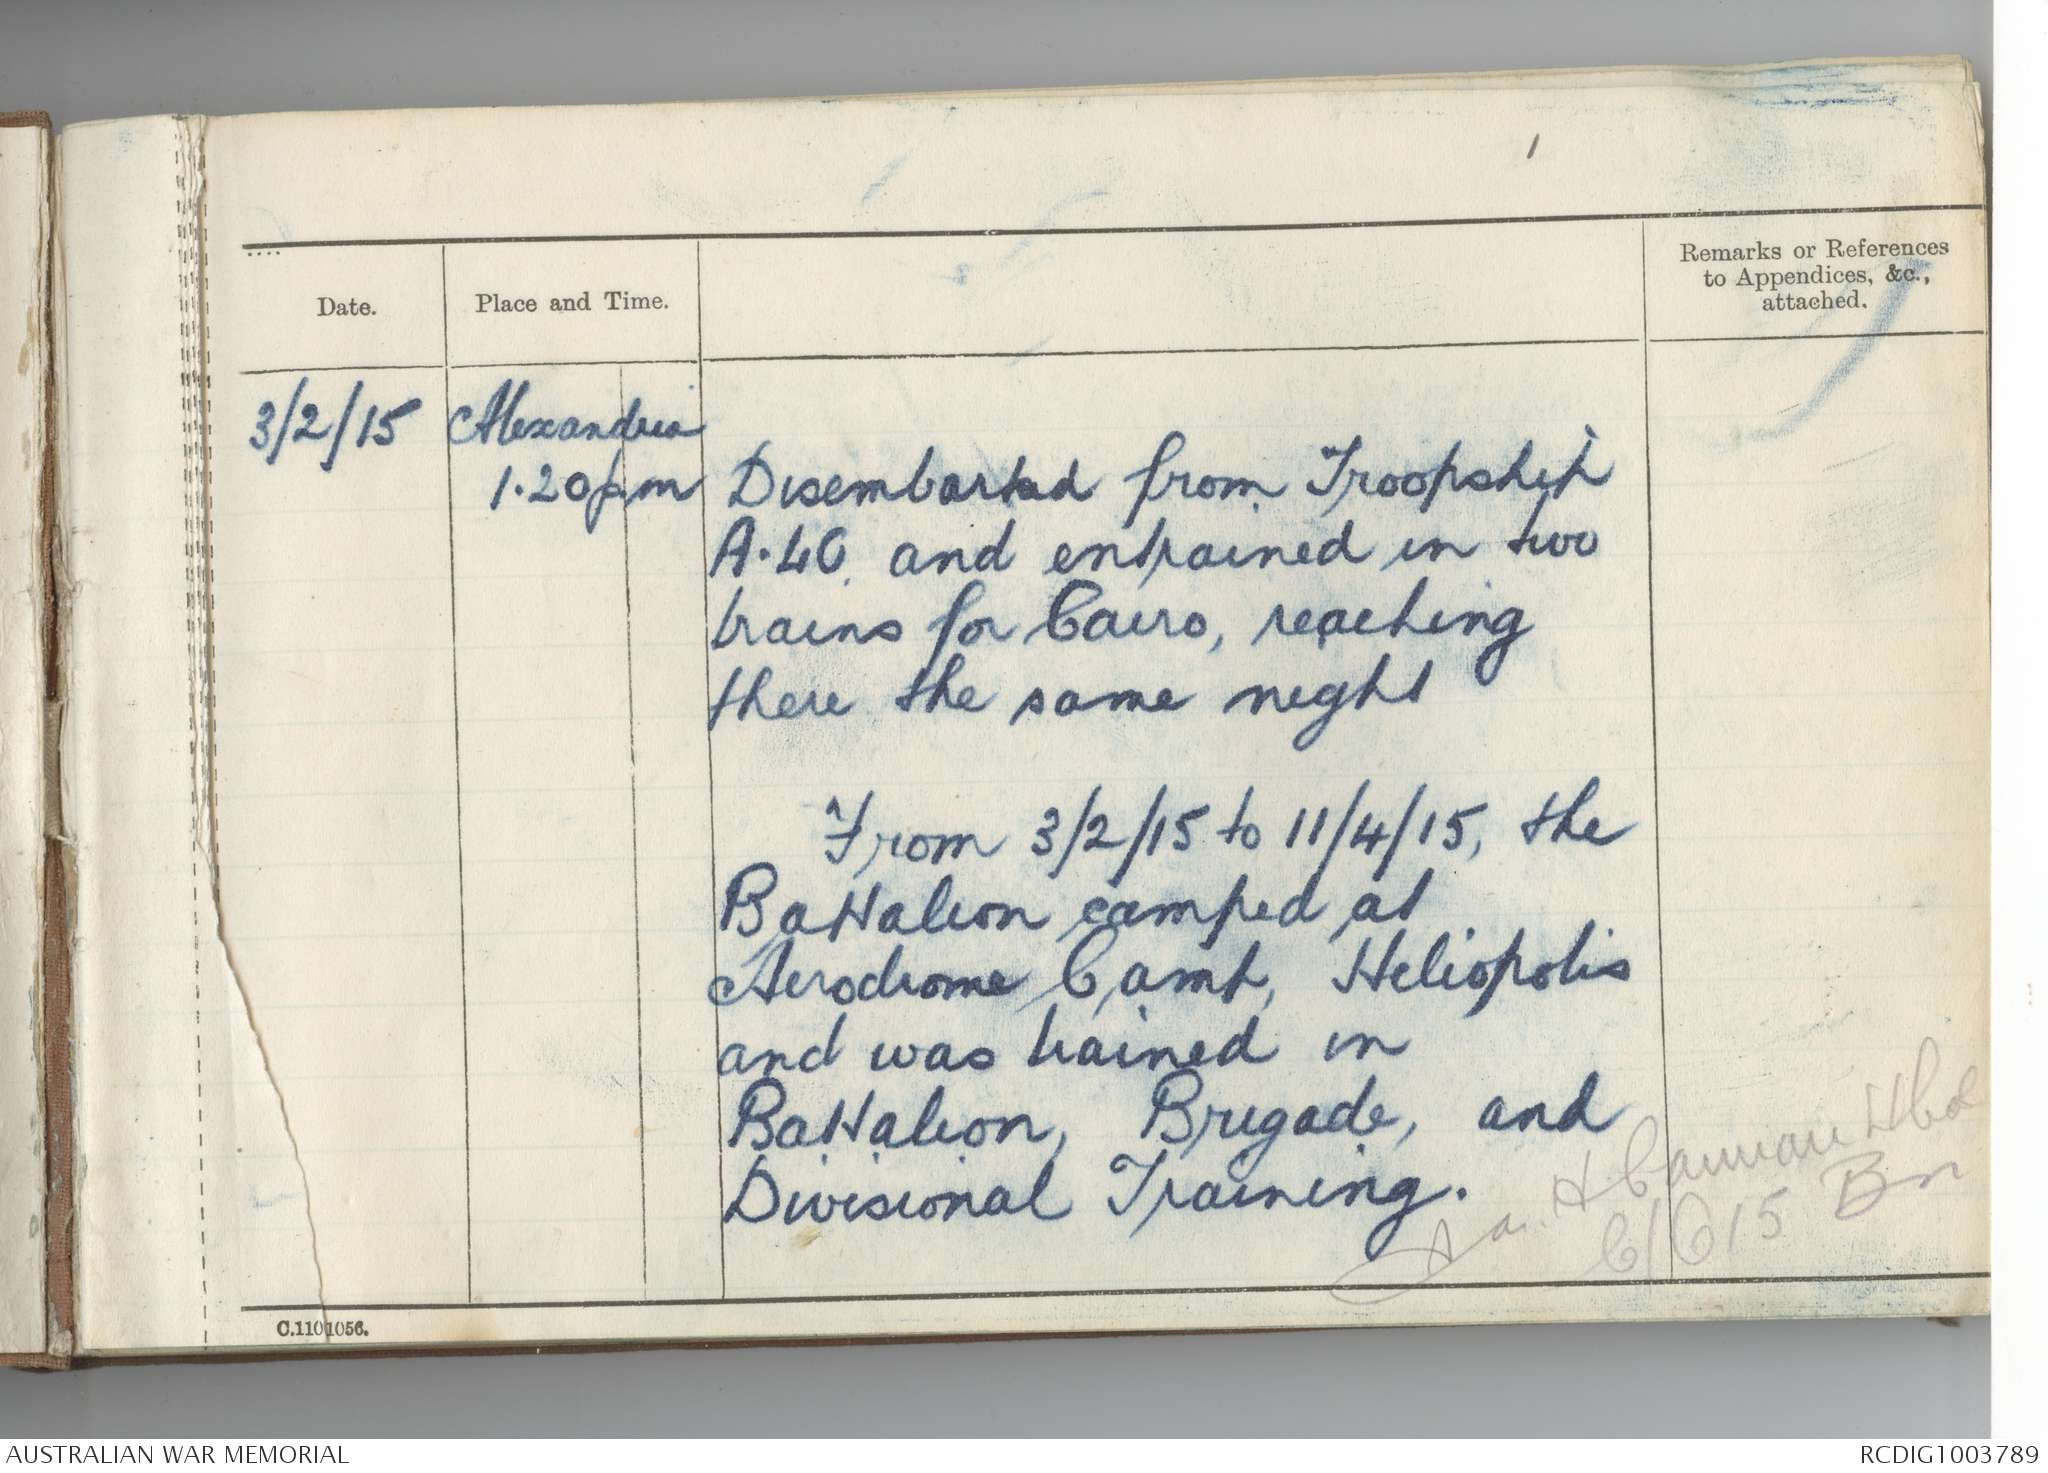 1
Date.
Place and Time.
Remarks or References
to Appendices, &c.,
attached.
3/2/15
Alexandria
1.20pm
Disembarked from Troopship
A.40. and entrained in two
trains for Cairo, reaching
there the same night
From 3/2/15 to 11/4/15, the
Battalion camped at
Aerodrome Camp, Heliopolis
and was trained in
Battalion, Brigade, and
Divisional Training.
H Cannan
15 Bn
C.1101056.
AUSTRALIAN WAR MEMORIAL
RCDIG1003789